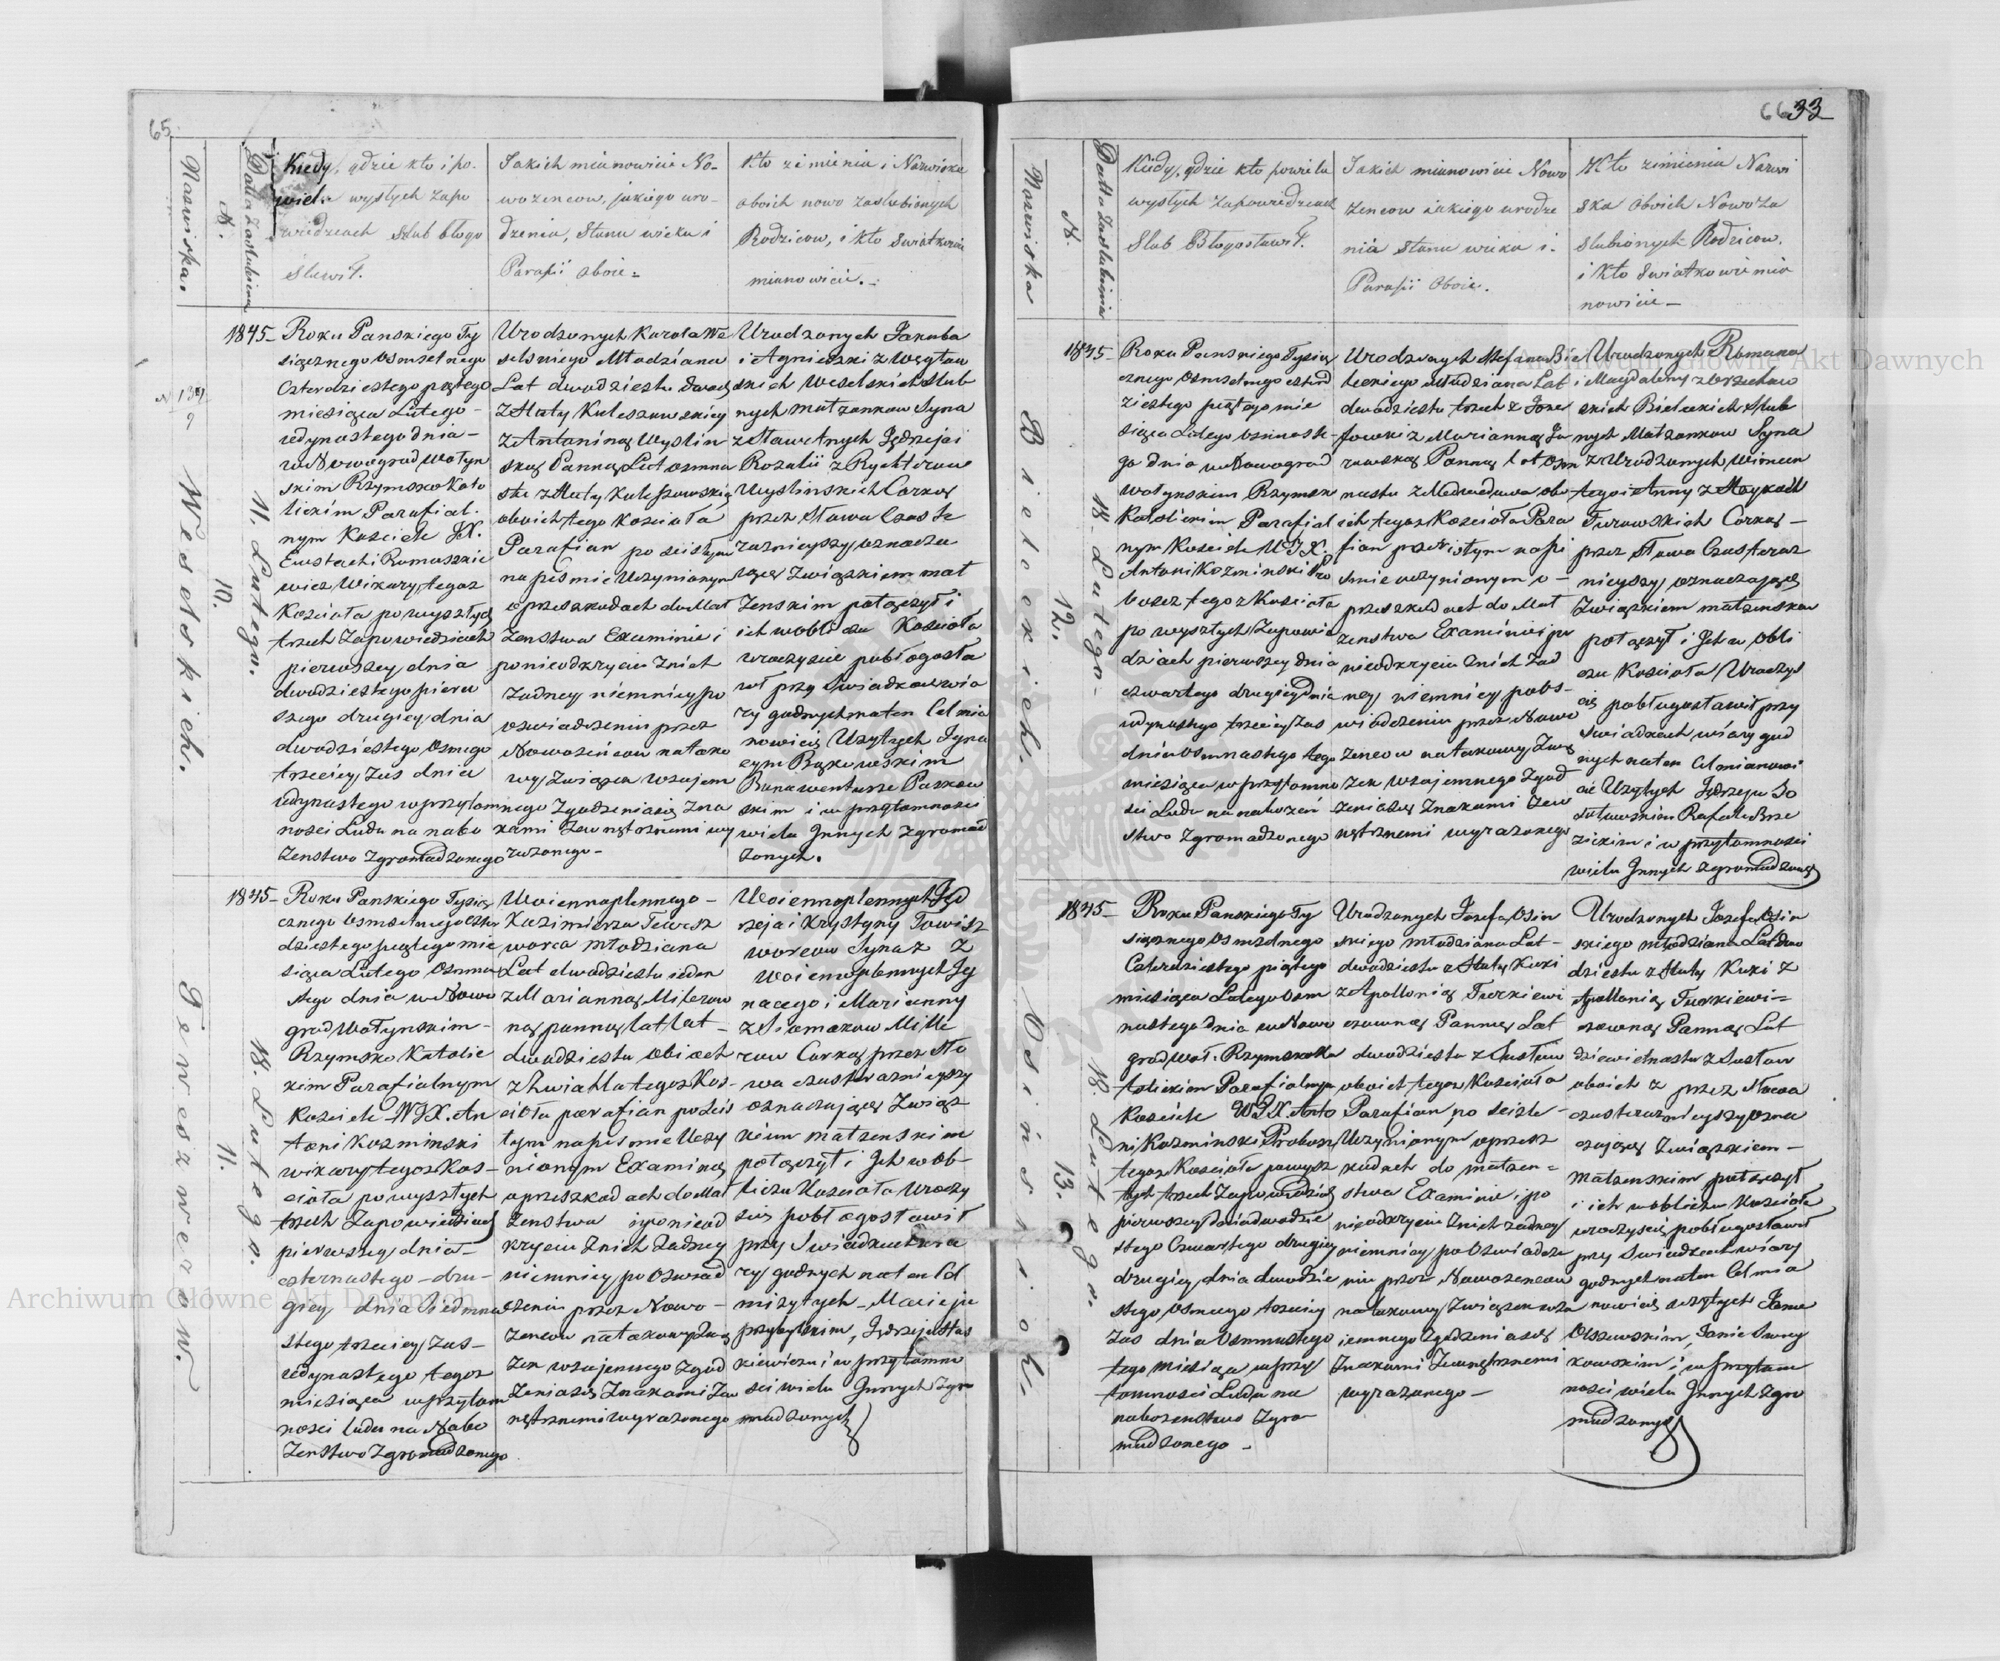 65
Nazwiska.
N.
Datta Zaślubienia
Kiedy, gdzie kto i po
wysłych zapo
wiedzeach szlub błogo
sławił.
Jakich mianowicie No-
wożencow, jakiego uro-
dzenia, stanu wieku i
Parafii oboie =
Kto z imienia i Nazwiska
oboich nowo zaslubionych
Rodzicow, i kto swiatkowie
mianowicie. -
Weselskich.
10.
11. Lutego.
1845 -
Roku Panskiego Ty
siącznego Osmsetnego
Czterdziestego piątego
miesiąca Lutego -
iedynastego dnia -
w Nowogrod Wołyn
skim Rzymsko Kato
lickim Parafial.
nym Kosciele JX.
Eustachi Romaszkie
wicz Wikary tegoz
Kościoła po wyszłych
trzech Zapowiedziach
pierwszey dnia
dwudziestego pierw
szego drugiey dnia
dwudziestego Osmego
trzeciey zas dnia
iedynastego w przytom
nosci Ludu na nabo
żenstwo zgromadzonego
Urodzonych Karola We
selskiego Młodziana
Lat dwudziestu dwoch
z Huty Kuleszowskiey
z Antoniną Wyslin
ską Panną Lat osmna
stu z Huty Kuleszowskiey
oboich tego Kosciola
Parafian po scisłym
na pismie Uczynionym
o przeszkodach do Mał
żenstwa Examinie i
ponieodkryciu z nich
żadney niemniey po
oswiadczeniu przez
Nowożeńcow na tako
wy Związek wzajem
nego Zgodzenia się zna
kami zewnętrznemi wy
rażonego -
Urodzonych Jakuba
i Agnieszki z Węgłow
skich Weselskich Slub
nych małżonkow Syna
z Sławetnych Jędrzeja i
Rozalii z Rychterow
Wyslinskich Corką
przez Słowa Czas te
razniejszy oznacza
iące Związkiem mał
żenskim połączył i
ich w obliczu Kosciola
uroczyscie pobłogosła
wił przy Swiadkach wia
ry godnych na ten Cel mia
nowicie Uzytych Igna
cym Bąkowskim
Bonawenturze Paszkow
skim i w przytomnosci
wielu Innych zgromad
zonych.
11.
18. Lutego.
1845 -
Roku Panskiego Tysią
cznego Osmsetnego czter
dziestego piątego mie
siąca Lutego Osmna
stego dnia w Nowo
grod Wołynskim -
Rzymsko Katolic
kim Parafialnym
Kosciele WJX. An
toni Kozminski
wikary tegoz Kos -
ciola po wyszłych
trzech Zapowiedziach
pierwszey dnia -
czternastego - dru -
giey dnia Siedmna
stego trzeciey zas -
iedynastego tegoz
miesiąca w przytom
nosci ludu na Nabo
żenstwo zgromadzonego
Woiennoplennego -
Kazimierza Tewesz
worca młodziana
Lat dwudziestu ieden
z Marianną Millerow
ną panną lat lat -
dwudziestu obioch
z Zwiahla tegoz Kos -
ciola parafian po scis
łym na pismie Uczy
nionym Examinie
o przeszkodach do Mał
żenstwa i ponieod
kryciu z nich żadney
niemniey po Oswiad
czeniu przez Nowo -
żencow na takowy Zwią
zek wzajemnego Zgod
zenia się Znakami Zew
nętrznemi wyrażonego
Woiennoplennych Jęd
rzeja i Krystyny Towisz
worcow Syna z z
Woiennoplennych Ig
nacego i Marianny
z Siomakow Mille
row Corką przez Sło
wa czas terazniejszy
oznaczające Związ
kiem małżenskim
połączył i Ich w ob -
liczu Kosciola Uroczy
scie pobłogosławił
przy Swiadkach wia
ry godnych na ten Cel
użytych - Macieju
przybylskim, Jędrzeju Stas
kiewiczu i w przytomno
sci wielu Innych zgro
madzonych
66 33
Nazwiska
N.
Datta Zaslubienia
Kiedy, gdzie kto powielu
wysłych zapowiedziach
Slub Błogosławił.
Jakich mianowicie Nowo
żencow iakiego urodze
nia stanu wieku i.
Parafii Oboie.
Kto zimienia Nazwi
ska Oboich Nowoża
slubionych Rodzicow.
i kto swiatkowie mia
nowicie -
Bieleckich.
12.
18. Lutego.
1845 -
Roku Panskiego Tysią
cznego Osmsetnego czterd
ziestego piątego mie
siąca Lutego osmnaste -
go dnia w Nowogrod
Wołynskim Rzymsko
Katolickim Parafial
nym Kosciele WJX.
Antoni Kozminski Pro
boszcz tegoz Kosciola
po wyszłych Zapowie
dziach pierwszey dnia
czwartego drugiey dnia
iedynastego trzeciey zas
dnia osmnastego tego
miesiąca w przytomno
sci Ludu na nabożen
stwo Zgromadzonego
Urodzonych Stefana Bie
leckiego młodziana Lat
dwudziestu trzech z Joze
fowki z Marianną Tu
rowską Panną lat osm
nastu z Medwedowa obo
ich tegoz Kosciola Para
fian po scisłym na pi
smie uczynionym o -
przeszkodach do Mał
żenstwa Examinie i po
nieodkryciu z nich żad
ney niemniey po os -
wiadczeniu przez Nowo
żencow na takowy Zwią
zek wzajemnego Zgod
zenia się Znakami Zew
nętrznemi wyrażonego
Urodzonych Romana
i Magdaleny z Orzechow
skich Bieleckich Slub
nych Małżonkow Syna
z Urodzonych Wincen
tego i Anny z Moykoll
Turowskich Corką -
przez Słowa Czas teraz
nieyszy oznaczające
Związkiem małżenskim
połączył i Ich w obli
czu Kosciola Uroczys
cie pobłogosławił przy
Swiadkach wiary god
nych na ten Cel mianowi
cie Uzytych Jędrzeju So
Rafale Brze
zickim i w przytomnosci
wielu Innych zgromadzonych
Osińskich.
13.
18. Lutego.
1845 -
Roku Panskiego Ty
siącznego Osmsetnego
Czterdziestego piątego
miesiąca Lutego Osm
nastego dnia w Nowo
grod Woł. Rzymsko Ka
tolickim Parafialnym
Kosciele WJX Anto
ni Kozminski Proboszcz
tegoz Kosciola powysz
łych trzech Zapowiedziach
pierwszey dnia dwudzie
stego Czwartego drugiey
drugiey dnia dwudzie
stego osmego trzeciey
zas dnia Osmnastego
tego miesiąca w przy
tomnosci Ludu na
nabożenstwo Zgro -
madzonego -
Urodzonych Jozefa Osin
skiego młodziana Lat -
dwudziestu z Huty Kuki
z Apollonią Turkiewi
czowną Panną Lat
dwudziestu z Sustow
oboich tegoz Kosciola
Parafian po scisłe -
Uczynionym o przesz
kodach do małżen =
stwa Examinie i po
nieodkryciu z nich żadney
niemniey po Oswiadcze
niu przez Nowożencow
na takowy Związek wza
iemnego Zgodzenia się
Znakami Zewnętrznemi
wyrażonego -
Urodzonych Jozefa Osin
skiego młodziana Lat dwu
dziestu z Huty Kuki z
Apollonią Turkiewi =
czowną Panną Lat
dziewietnastu z Sustow
oboich z przez Słowa
czas terazniejszy ozna
czające Związkiem -
małżenskim połączył
i ich w obliczu Kosciola
uroczyscie pobłogosławił
przy Swiadkach wiary
godnych na ten Cel mia
nowicie użytych Janie
Olszewskim, Janie Smey
kowskim i w przytom
nosci wielu Innych zgro
madzonych
Archiwum Główne Akt Dawnych
Archiwum Główne Akt Dawnych